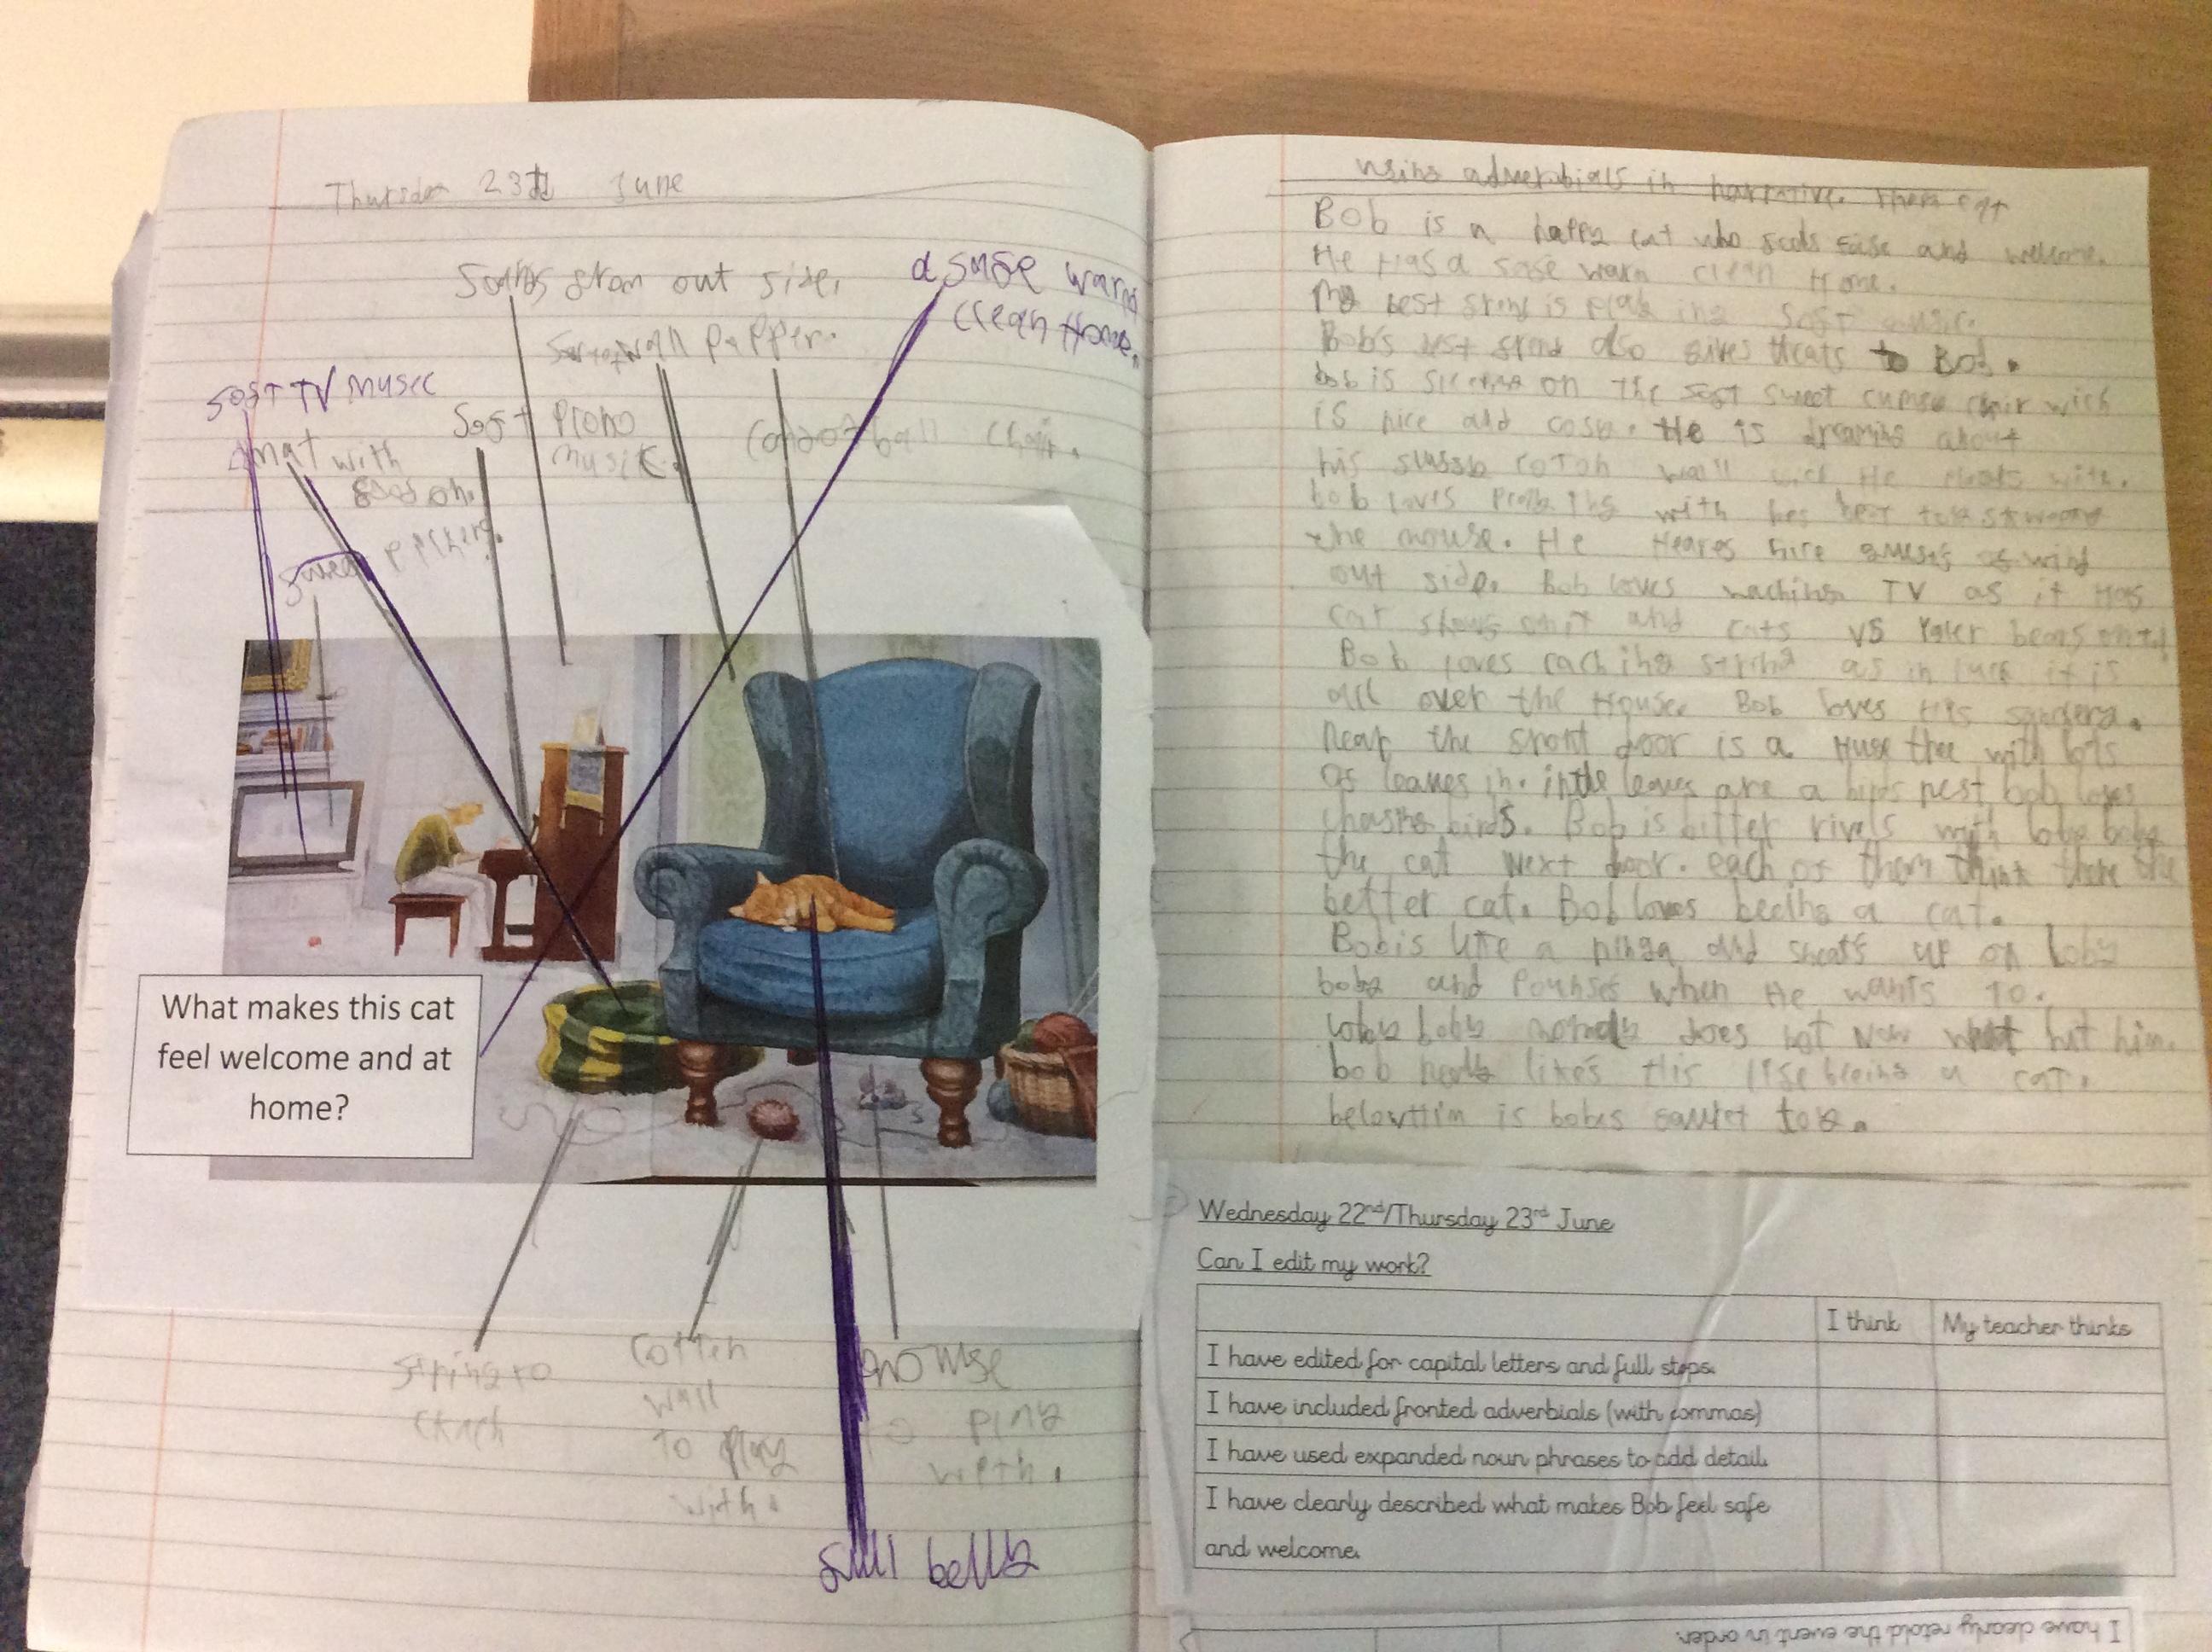 Thursda 23rd June
Sounds from out side.
a safe warm
clean Home.
wall papper.
soft TV musec
Soft Piono
music.
chair.
mat with
food on.
string to
cach
Cotten
wall
to play
with.
mouse
to play
with.
full belly
What makes this cat
feel welcome and at
home?
using adverbials in narrative.
Bob is a happy cat who feels safe and welcome.
He Has a safe warm clean Home.
My best frend is playing soft music.
Bob's best frend also gives treats to Bob.
bob is sleeping on the soft sweet chair wich
is nice and cosy. He is dreaming about
his wall wich He plays with.
bob loves playing with his
the mouse. He Heares wind
out side. Bob loves waching TV as it Has
cat shows on it and cats vs bears on it
Bob loves caching string as in luck it is
all over the House. Bob loves His
Near the front door is a Huge tree with lots
of leaves in. in the leaves are a nest, bob loves
chasing birds. Bob is bitter rivels with
the cat Next door. each of them think there the
better cat. Bob loves beeing a cat.
Bob is like a ninga and up on
boby and Pounses when He wants to.
boby does not Now what hit him.
bob likes His life a cat.
is toy.
Wednesday 22nd/Thursday 23rd June
Can I edit my work?
I think My teacher thinks
I have edited for capital letters and full stops.
I have included fronted adverbials (with commas)
I have used expanded noun phrases to add detail.
I have clearly described what makes Bob feel safe
and welcome.
I have clearly retold the event in order.